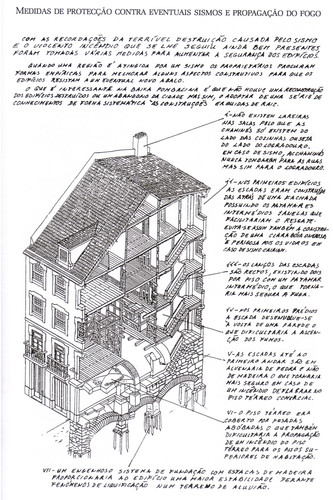 MEDIDAS DE PROTECÇÃO CONTRA EVENTUAIS SISMOS E PROPAGAÇÃO DO FOGO
COM AS RECORDAÇÕES DA TERRÍVEL DESTRUIÇÃO CAUSADA PELO SISMO
E O VIOLENTO INCÊNDIO QUE SE LHE SEGUIU AINDA BEM PRESENTES
FORAM TOMADAS VÁRIAS MEDIDAS PARA AUMENTAR A SEGURANÇA DOS EDIFÍCIOS.
QUANDO UMA REGIÃO É ATINGIDA POR UM SISMO OS PROPRIETÁRIOS PROCURAM
FORMAS EMPÍRICAS PARA MELHORAR ALGUNS ASPECTOS CONSTRUTIVOS PARA QUE OS
EDIFÍCIOS RESISTAM A UM EVENTUAL NOVO ABALO.
O QUE É INTERESSANTE NA BAIXA POMBALINA É QUE NÃO HOUVE UMA RECONSTRUÇÃO
DOS EDIFÍCIOS DESTRUÍDOS OU UM ABANDONO DA CIDADE MAS SIM, A ADOPÇÃO DE UMA SÉRIE DE
CONHECIMENTOS DE FORMA SISTEMÁTICA ÀS CONSTRUÇÕES ERGUIDAS DE RAIZ.
I - NÃO EXISTEM LAREIRAS
NAS SALAS PELO QUE AS
CHAMINÉS SÓ EXISTEM DO
LADO DAS COZINHAS OU SEJA
DO LADO DO LOGRADOURO.
EM CASO DE SISMO, AS CHAMINÉS
NUNCA TOMBARÃO PARA AS RUAS
MAS SIM PARA O LOGRADOURO.
II - NOS PRIMEIROS EDIFÍCIOS
AS ESCADAS ERAM CONSTRUÍ-
DAS ATRÁS DE UMA FACHADA
POSSUINDO OS PATAMARES
INTERMÉDIOS JANELAS QUE
FACILITARIAM O RESGATE.
EVITA-SE ASSIM TAMBÉM A CONSTRU-
ÇÃO DE UMA CLARABÓIA ONEROSA
E PERIGOSA POIS OS VIDROS EM
CASO DE SISMO CAIRIAM.
III - OS LANÇOS DAS ESCADAS
SÃO RECTOS, EXISTINDO DOIS
POR PISO COM UM PATAMAR
INTERMÉDIO, O QUE TORNA-
RIA MAIS SEGURA A FUGA.
IV - NOS PRIMEIROS PRÉDIOS
A ESCADA DESENVOLVE-SE
À VOLTA DE UMA PAREDE O
QUE DIFICULTARIA A ASCEN-
ÇÃO DOS FUMOS.
V - AS ESCADAS ATÉ AO
PRIMEIRO ANDAR SÃO EM
ALVENARIA DE PEDRA E NÃO
DE MADEIRA O QUE TORNARIA
MAIS SEGURO EM CASO DE
UM INCÊNDIO DEFLAGRAR NO
PISO TÉRREO COMERCIAL.
VI - O PISO TÉRREO ERA
COBERTO POR PESADAS
ABÓBADAS O QUE TAMBÉM
DIFICULTARIA A PROPAGAÇÃO
DE UM INCÊNDIO DO PISO
TÉRREO PARA OS PISOS SU-
PERIORES DE HABITAÇÃO.
VII - UM ENGENHOSO SISTEMA DE FUNDAÇÃO COM ESTACAS DE MADEIRA
PROPORCIONARIA AO EDIFÍCIO UMA MAIOR ESTABILIDADE PERANTE
FENÓMENOS DE LIQUIFAÇÃO NUM TERRENO DE ALUVIÃO.